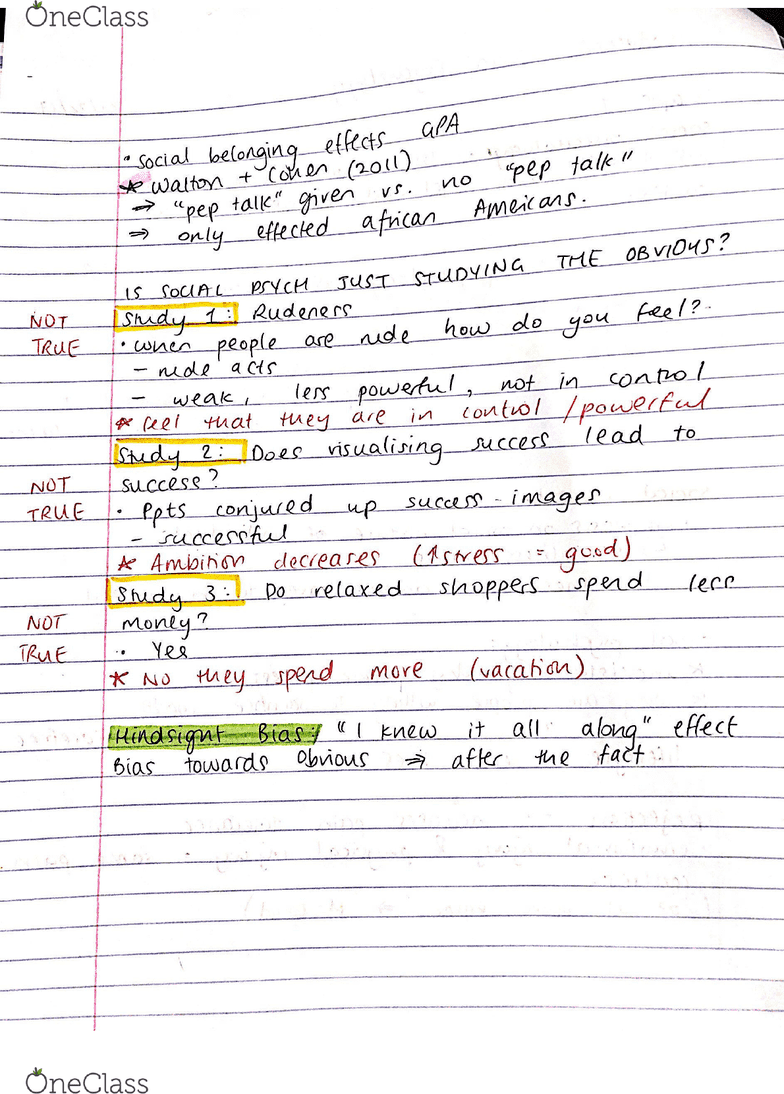 OneClass
• social belonging effects GPA
* Walton + Cohen (2011)
⇒ "pep talk" given vs. no "pep talk"
⇒ only effected african Ameicans.
IS SOCIAL PSYCH JUST STUDYING THE OBVIOUS?
NOT Study 1: Rudeness
TRUE • when people are rude how do you feel?
- rude acts
- weak, less powerful, not in control
* feel that they are in control / powerful
Study 2: Does visualising success lead to
NOT success?
TRUE • Ppts conjured up success-images
- successful
* Ambition decreases (↑stress = good)
Study 3: Do relaxed shoppers spend less
NOT money?
TRUE • Yes
* No they spend more (vacation)
Hindsight Bias: "I knew it all along" effect
Bias towards obvious ⇒ after the fact.
OneClass